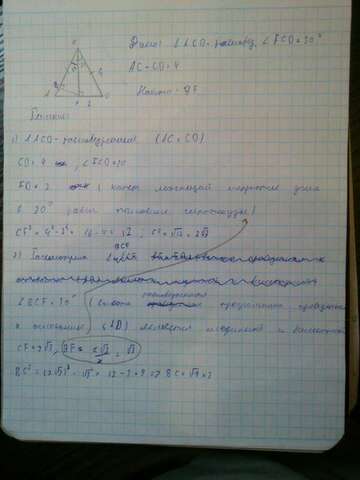 Дано: △ACD - равнобед, ∠FCD = 30°
AC = CD = 4
Найти - BF
Решение:
1) △ACD - равнобедренный (AC = CD)
CD = 4 ; ∠FCD = 30
FD = 2 (катет лежащий напротив угла
в 30° равен половине гипотенузы)
CF² = 4² - 2² = 16 - 4 = 12 ; CF = √12 = 2√3
2) Рассмотрим
∠BCF = 30° (высота проведённая
к основанию (AD) является медианой и биссектрисой
CF = 2√3, BF = 2√3/2 = √3
BC² = (2√3)² - √3² = 12 - 3 = 9 => BC = √9 = 3